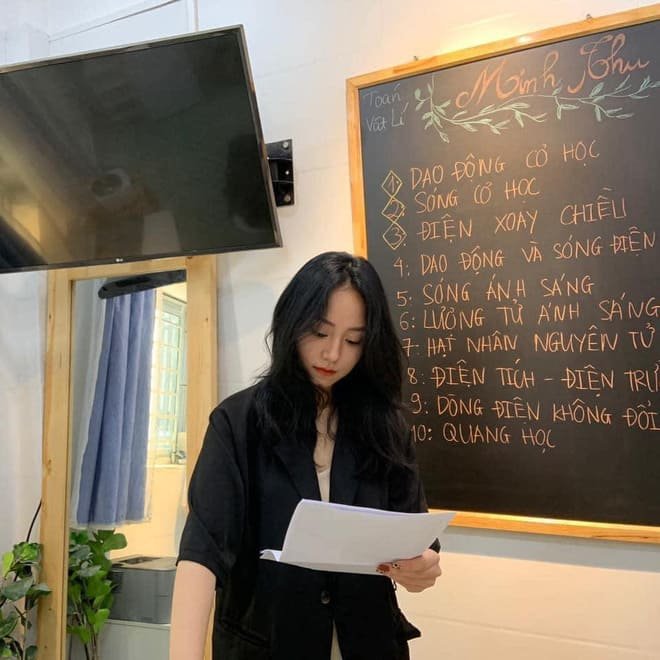 LG
Toán
Vật Lí
Minh Thu
1: DAO ĐỘNG CƠ HỌC
2: SÓNG CƠ HỌC
3: ĐIỆN XOAY CHIỀU
4: DAO ĐỘNG VÀ SÓNG ĐIỆN
5: SÓNG ÁNH SÁNG
6: LƯỢNG TỬ ÁNH SÁNG
7: HẠT NHÂN NGUYÊN TỬ
8: ĐIỆN TÍCH - ĐIỆN TRƯ
9: DÒNG ĐIỆN KHÔNG ĐỔI
10: QUANG HỌC